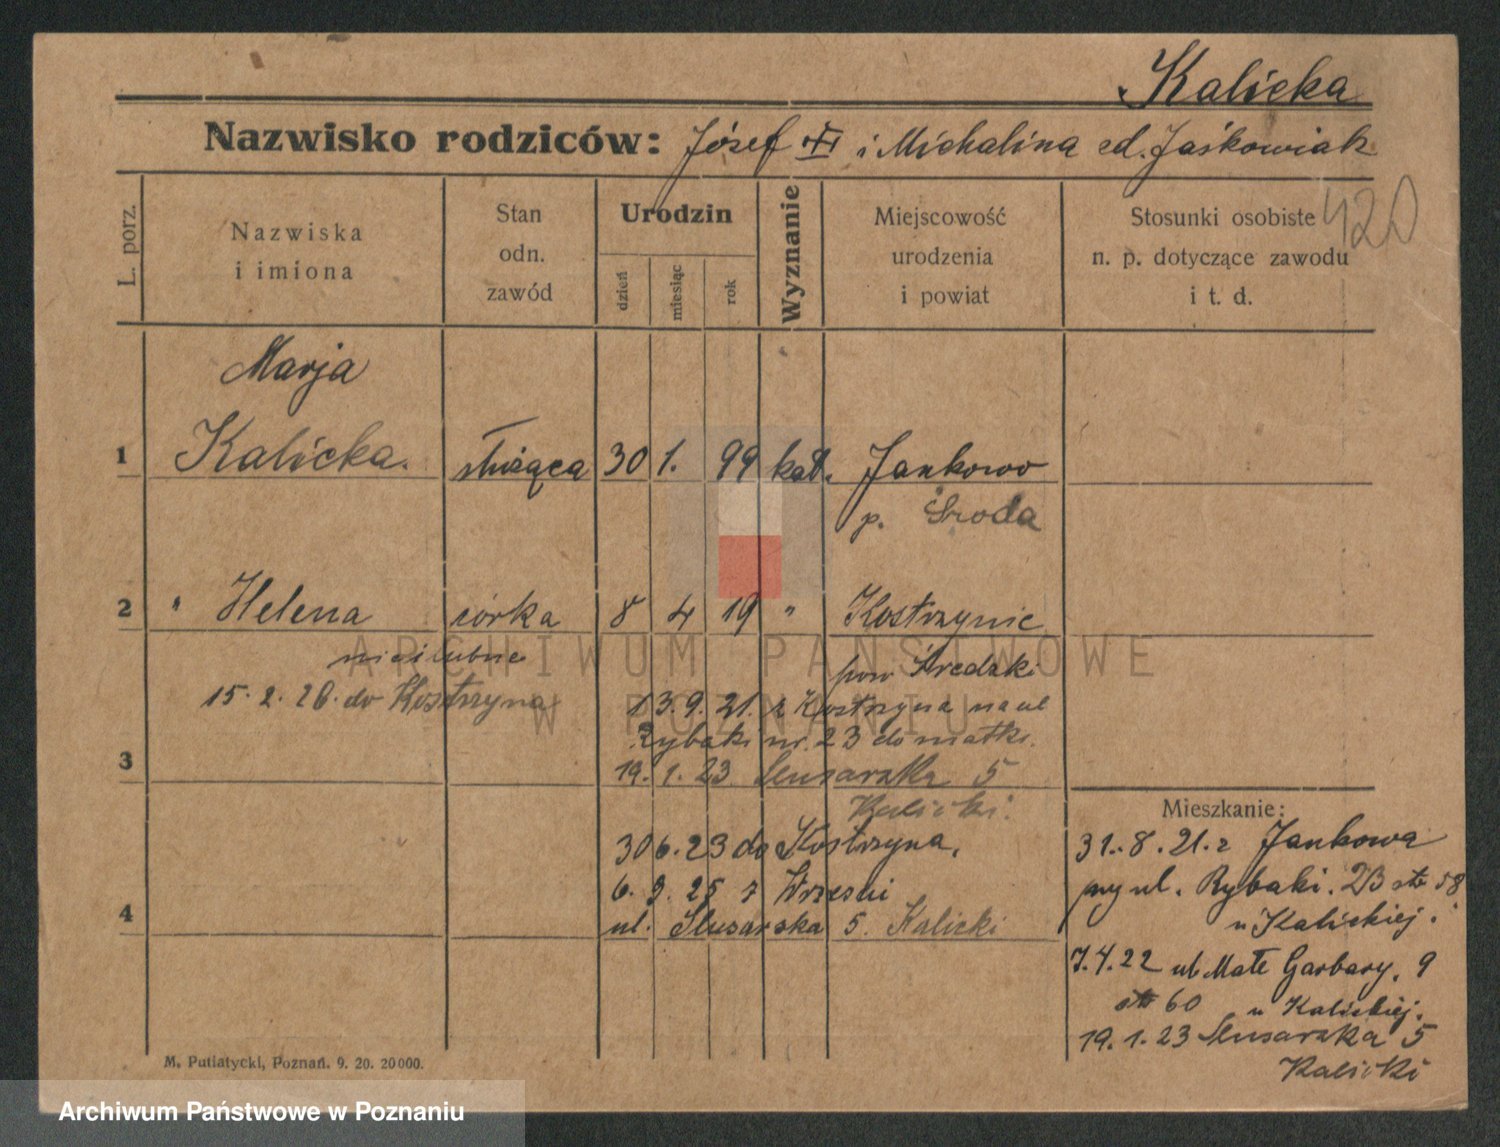 Kalicka
Nazwisko rodziców: Józef i Michalina cd. Jaśkowiak
420
L. porz.
Nazwiska
i imiona
Stan
odn.
zawód
Urodzin
dzień
miesiąc
rok
Wyznanie
Miejscowość
urodzenia
i powiat
Stosunki osobiste
n. p. dotyczące zawodu
i t. d.
Marja
1 Kalicka. służąca 30 1. 99 kat. Jankowo
p. Środa
2 " Helena córka 8 4 19 " Kostrzynie
nieślubne pow Średzki
15. 2. 26. do Kostrzyna
13.9.21. z Kostrzyna na ul
Rybaki nr. 23 do matki.
3
19. 1. 23 Slusarska 5
Kalicki.
30 6. 23 do Kostrzyna,
6. 9. 25 z Wrześni
4
ul. Slusarska 5. Kalicki
Mieszkanie:
31. 8. 21. z Jankowa
przy ul. Rybaki. 23 str 58
u Kalickiej.
7.4.22 ul Małe Garbary, 9
str 60 u Kalickiej.
19. 1. 23 Slusarska 5
Kalicki
M. Putiatycki, Poznań. 9. 20. 20000.
ARCHIWUM PAŃSTWOWE
W POZNANIU
Archiwum Państwowe w Poznaniu